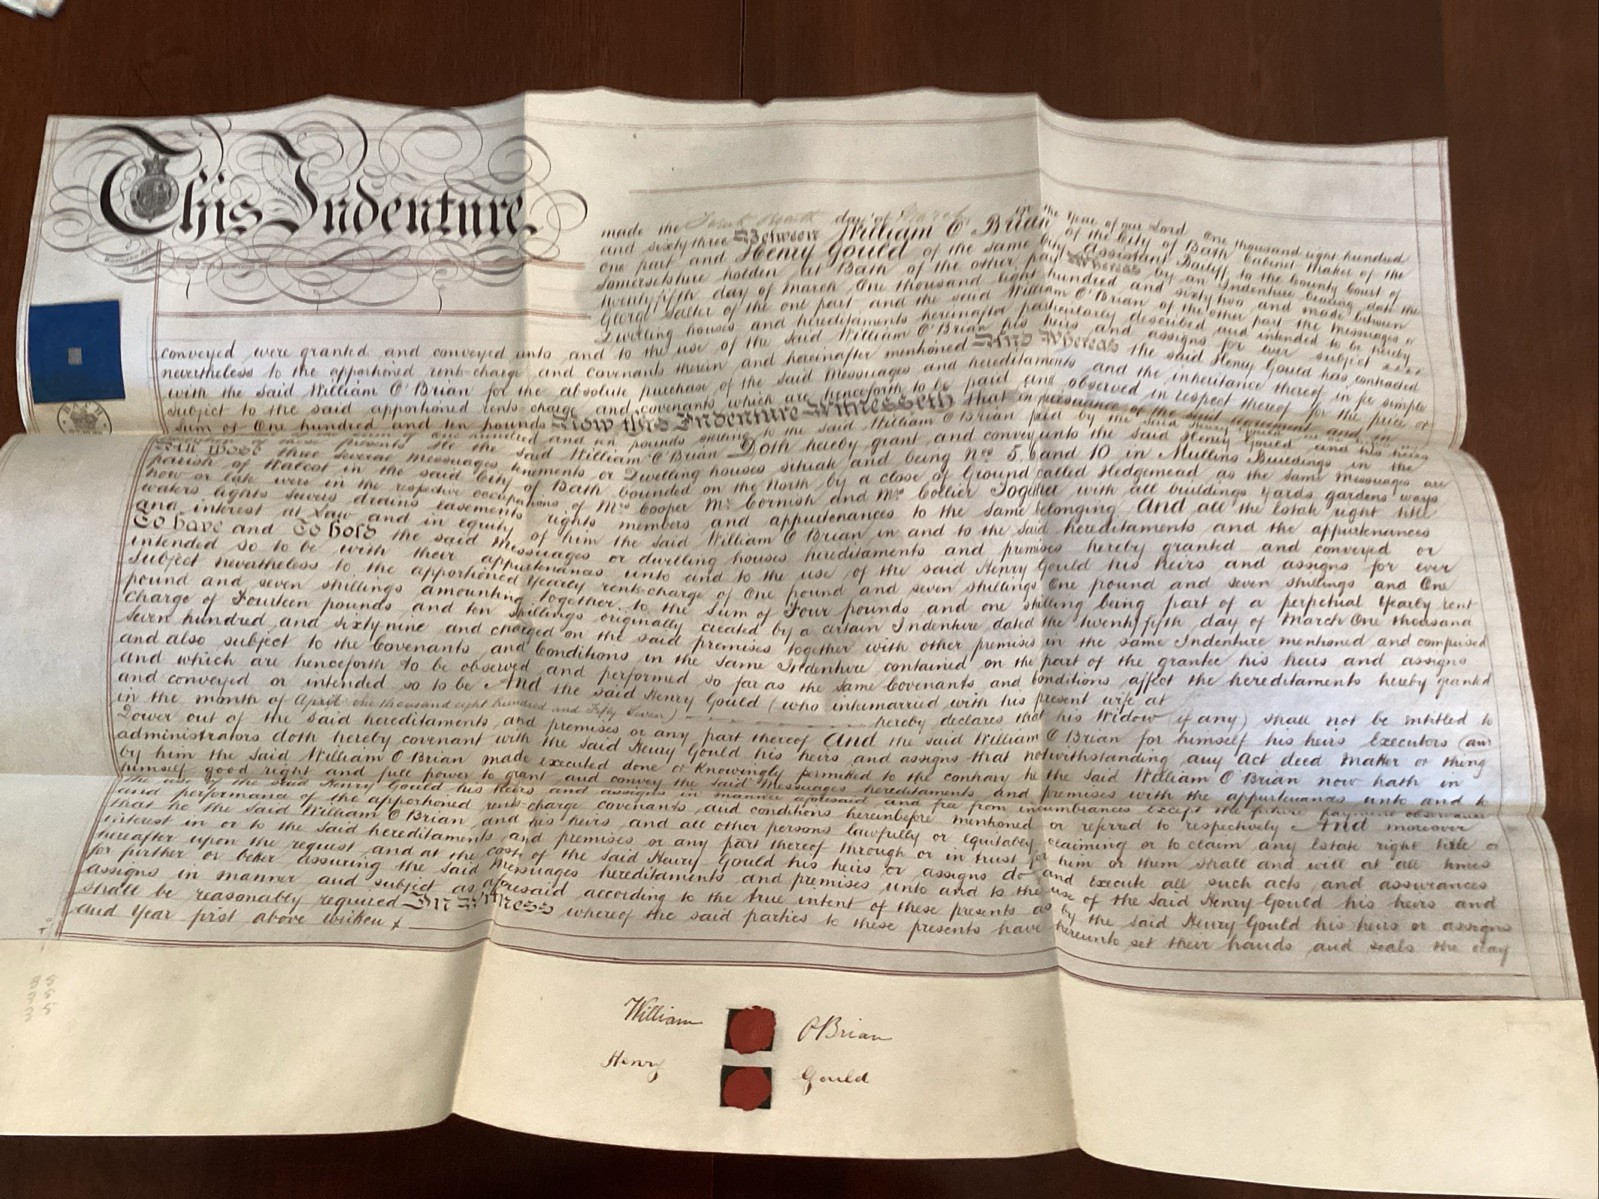 This Indenture
made the day of March in the Year of our Lord One thousand eight hundred
and sixty three Between William O'Brian of the City of Bath Cabinet Maker of the
one part and Henry Gould of the same City Assistant Bailiff to the County Court of
Somersetshire holden at Bath of the other part Whereas by an Indenture bearing date the
twenty fifth day of March One thousand eight hundred and sixty two and made between
George Salter of the one part and the said William O'Brian of the other part the Messuages or
Dwelling houses and hereditaments hereinafter particularly described and intended to be hereby
conveyed were granted and conveyed unto and to the use of the said William O'Brian his heirs and assigns for ever subject
nevertheless to the apportioned rent-charge and covenants therein and hereinafter mentioned And Whereas the said Henry Gould has contracted
with the said William O'Brian for the absolute purchase of the said Messuages and hereditaments and the inheritance thereof in fee simple
subject to the said apportioned rent charge and covenants which are henceforth to be paid and observed in respect thereof for the price or
sum of One hundred and ten pounds Now this Indenture Witnesseth that in pursuance of the said agreement and in
of the sum of one hundred and ten pounds sterling to the said William O'Brian paid by the said Henry Gould
of these presents He the said William O'Brian Doth hereby grant and convey unto the said Henry Gould and his heirs
All those three several Messuages tenements or Dwelling houses situate and being Nos 5, 6 and 10 in Mullins Buildings in the
parish of Walcot in the said City of Bath bounded on the North by a close of Ground called Hedgemead as the same Messuages are
now or late were in the respective occupations of Mrs Cooper Mr Cornish and Mrs Collier Together with all buildings yards gardens ways
waters lights sewers drains easements rights members and appurtenances to the same belonging And all the Estate right title
and interest at Law and in equity of him the said William O'Brian in and to the said hereditaments and the appurtenances
To have and To hold the said Messuages or dwelling houses hereditaments and premises hereby granted and conveyed or
intended so to be with their appurtenances unto and to the use of the said Henry Gould his heirs and assigns for ever
Subject nevertheless to the apportioned Yearly rent-charge of One pound and seven shillings One pound and seven shillings and One
pound and seven shillings amounting together to the Sum of Four pounds and one shilling being part of a perpetual Yearly rent
charge of Fourteen pounds and ten shillings originally created by a certain Indenture dated the twenty fifth day of March One thousand
seven hundred and sixty nine and charged on the said premises together with other premises in the same Indenture mentioned and comprised
and also subject to the Covenants and Conditions in the same Indenture contained on the part of the grantee his heirs and assigns
and which are henceforth to be observed and performed so far as the same Covenants and Conditions affect the hereditaments hereby granted
and conveyed or intended so to be And the said Henry Gould (who intermarried with his present wife at
in the month of April one thousand eight hundred and Fifty Seven) hereby declares that his Widow (if any) shall not be entitled to
Dower out of the said hereditaments and premises or any part thereof And the said William O'Brian for himself his heirs Executors and
administrators doth hereby covenant with the said Henry Gould his heirs and assigns that notwithstanding any Act deed Matter or thing
by him the said William O'Brian made executed done or Knowingly permitted to the contrary he the said William O'Brian now hath in
himself good right and full power to grant and convey the said Messuages hereditaments and premises with the appurtenances unto and to
the use of the said Henry Gould his heirs and assigns in manner aforesaid and free from incumbrances Except the future payment observance
and performance of the apportioned rent-charge covenants and conditions hereinbefore mentioned or referred to respectively And moreover
that he the said William O'Brian and his heirs and all other persons lawfully or Equitably claiming or to claim any Estate right title or
interest in or to the said hereditaments and premises or any part thereof through or in trust for him or them shall and will at all times
hereafter upon the request and at the cost of the said Henry Gould his heirs or assigns do and Execute all such acts and assurances
for further or better assuring the said Messuages hereditaments and premises unto and to the use of the said Henry Gould his heirs and
assigns in manner and subject as aforesaid according to the true intent of these presents as by the said Henry Gould his heirs or assigns
shall be reasonably required In Witness whereof the said parties to these presents have hereunto set their hands and seals the day
and Year first above written
William O'Brian
Henry Gould